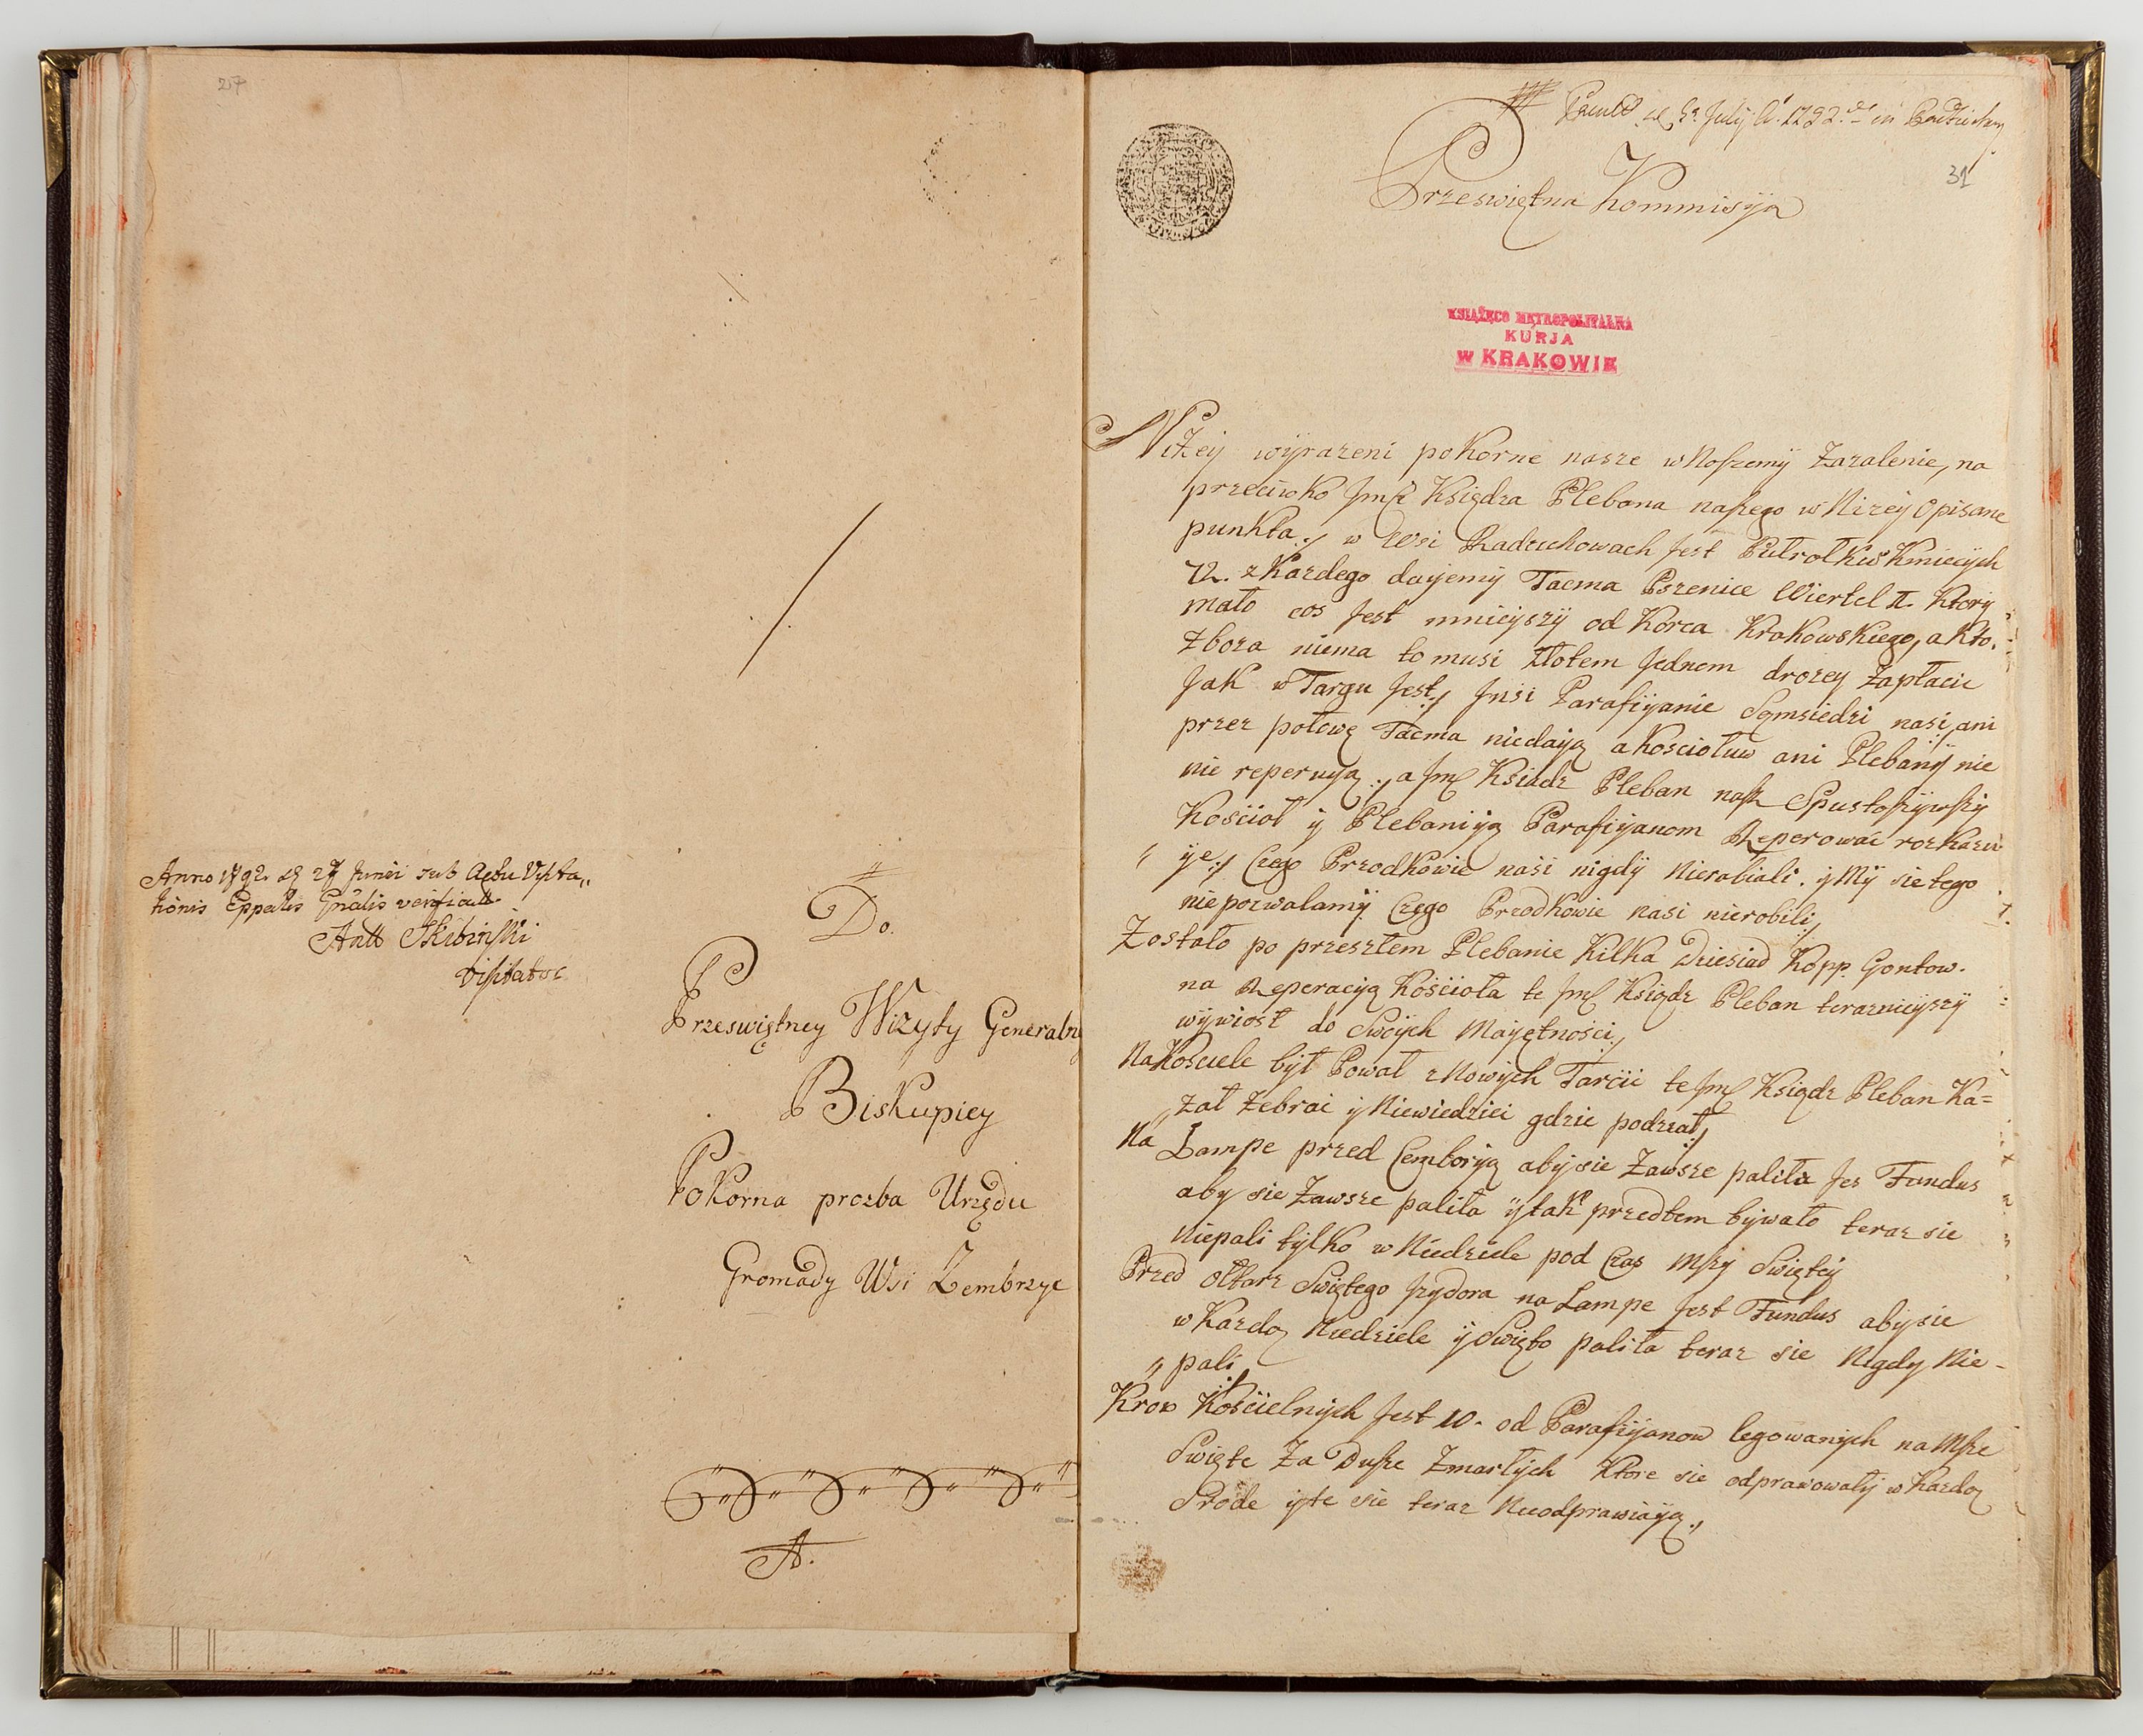 217
Anno 1792 27 Junii sub Actu Visita„
tionis Eppalis Gnâlis
Antt Skibinski
Visitator
Do.
Przeswiętney Wizyty Generalny
Biskupiey
Pokorna prozba Urzędu
Gromady Wsi Zembrzyc
A.
5ta July A. 1792. in
31
Przeswiętna Kommisÿa
KSIĄŻĘCO METROPOLITALNA
KURJA
W KRAKOWIE
Niżey wÿrazeni pokorne nasze wnoszemÿ Zazalenie, na
przeciwko Jmći Księdza Plebana naszego w Nizey Opisane
punkta./ w Wsi Radziechowach Jest Kmiecÿch
72. z Kazdego daÿemÿ Tacma Pszenice Wiertel II. Ktorÿ
mało cos Jest mnieÿszÿ od Korca Krakowskiego, a Kto.
Zboza niema to musi Złotem Jednem drozey Zapłacic
Jak w Targu Jest./ Jnsi Parafiÿanie Sąmsiedzi nasi, ani
przez połowę Tacma niedaÿą a Kosciołuw ani Plebanÿ nie
nie reperuÿą./ a Jmć Ksiadz Pleban nasz Spustoszÿwszÿ
Kościoł ÿ Plebaniÿą Parafiÿanom Reperowac rozkazu
„ ÿe./ Czego Przodkowie nasi nigdÿ Nierabiali. ÿ Mÿ sie tego
niepozwalamÿ Czego Przodkowie nasi nierobili./
Zostało po przeszłem Plebanie Kilka Dziesiad Kopp. Gontow.
na Reperacÿą Kościoła te Jmć Ksiądz Pleban teraznieÿszÿ
wÿwiosł do Swoÿch Maÿętności./
Na Kosciele bÿł Pował z Nowÿch Tarcic te Jmć Ksiądz Pleban Ka=
„ zał Zebrac ÿ Niewiedziei gdzie podział./
Na Lampe przed Cemborÿą abÿ sie Zawsze paliła Jes Fundus
aby sie Zawsze paliła ÿ tak przedtem bÿwało teraz sie
Niepali tÿlko w Niedziele pod Czas Mszy Swiętÿ
Przed Ołtarz Swiętego Jzydora na Lampe Jest Fundus abÿ sie
w Kazdą Niedziele ÿ Swięto paliła teraz sie Nigdy Nie-
„ pali./
Krow Kościelnÿch Jest 10. od Parafiÿanow legowanÿch na Msze
Swięte Za Dusze Zmarłÿch Ktore sie odprawowałÿ w Kazdą
Srode ÿ te sie teraz Nieodprawiaÿą./